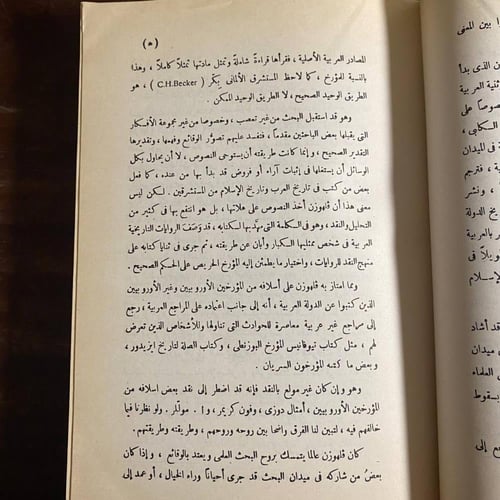 (ه)
المصادر العربية الأصلية ، فقرأها قراءةً شاملةً وتمثل مادتها تمثلاً كاملاً ، وهذا
بالنسبة للمؤرخ ، كما لاحظ المستشرق الألمانى بِكَّر ( C.H.Becker ) ، هو
الطريق الوحيد الصحيح ، لا الطريق الوحيد الممكن .
وهو قد استقبل البحث من غير تعصب ، وخصوصا من غير مجموعة الأفكار
التى يقبلها بعض الباحثين مقدماً ، فتفسد عليهم تصوُّر الوقائع وفهمها ، وتقديرها
التقدير الصحيح ، وإنما كانت طريقته أن يستوحى النصوص ، لا أن يحاول بكل
الوسائل أن يستغلها فى إثبات آراء أو فروض قد بدأ بها من عنده ، كما فعل
بعض من كتب فى تاريخ العرب وتاريخ الإسلام من المستشرقين . لكن ليس
معنى هذا أن ڤلهوزن أخذ النصوص على علاتها ، بل هو انتفع بها فى كثير من
التحليل والنقد ، وهو فى الكلمة التى مهّد بها لكتابه ، قد وَصَفَ الروايات التاريخية
العربية فى شخص ممثليها الكبار وأبان عن طريقته ، ثم جرى فى ثنايا كتابه على
منهج النقد للروايات ، واختيار ما يطمئن إليه المؤرخ الحريص على الحكم الصحيح .
ومما امتاز به ڤلهوزن على أسلافه من المؤرخين الأوروبيين وغير الأوروبيين
الذين كتبوا عن الدولة العربية ، أنه إلى جانب اعتماده على المراجع العربية ، رجع
إلى مراجع غير عربية معاصرة للحوادث التى تناولها وللأشخاص الذين تعرض
لهم ، مثل كتاب تيوفانيس المؤرخ البوزنطى ، وكتاب الصلة لتاريخ ايزيدور ،
وبعض ما كتبه المؤرخون السريان .
وهو وإن كان غير مولع بالنقد فإنه قد اضطر إلى نقد بعض اسلافه من
المؤرخين الأوروبيين ، أمثال دوزى ، وفون كريمر ، و ا . مولّلر . ولو نظرنا فيما
خالفهم فيه ، لتبين لنا الفرق واضحا بين روحه وروحهم ، وطريقته وطريقتهم .
كان ڤلهوزن عالما يتمسك بروح البحث العلمى ويعتد بالوقائع ، وإذا كان
بعضُ من شاركه فى ميدان البحث قد جرى أحيانًا وراء الخيال ، أو عمد إلى